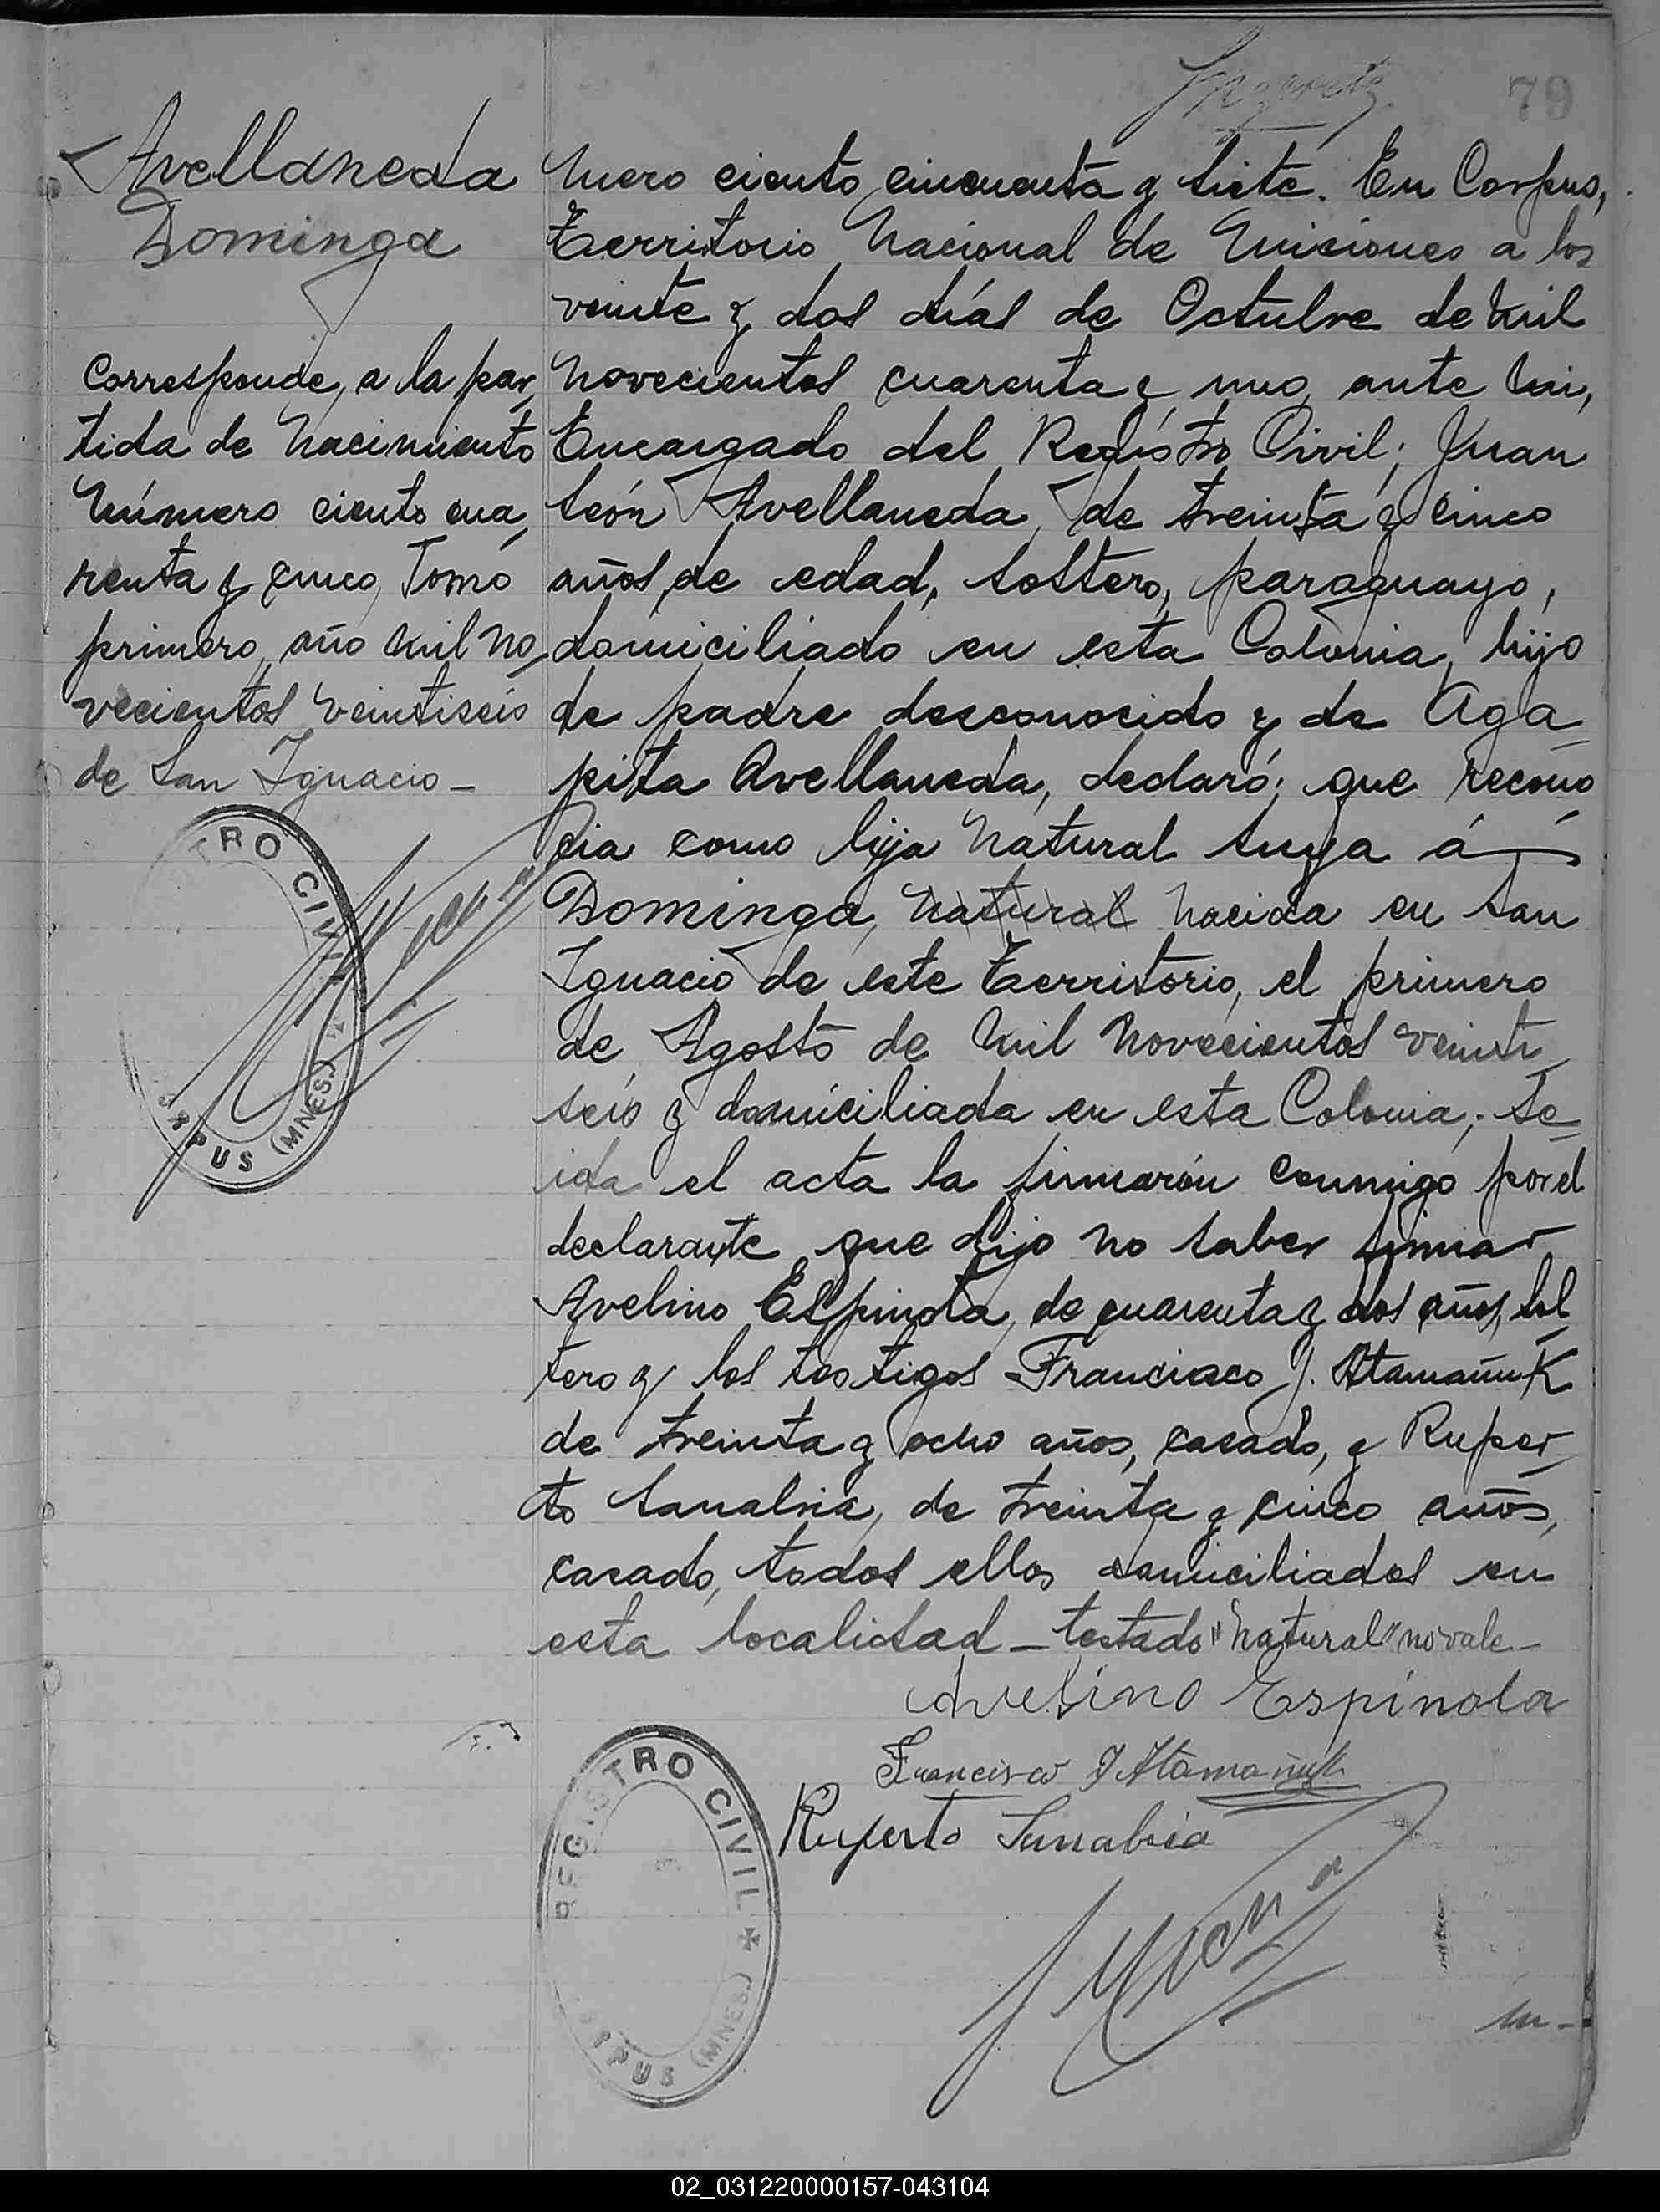 79
Avellaneda
Dominga
Corresponde, a la par
tida de Nacimiento
Número ciento cua
renta y cinco, Tomo
primero, año mil no
vecientos veintiseis
de San Ignacio _
REGISTRO CIVIL
CORPUS (MNES.)
mero ciento cincuenta y siete. En Corpus,
Territorio Nacional de Misiones a los
veinte y dos días de Octubre de mil
novecientos cuarenta y uno, ante mi,
Encargado del Registro Civil; Juan
León Avellaneda, de treinta y cinco
años de edad, soltero, paraguayo,
domiciliado en esta Colonia, hijo
de padre desconocido y de Aga
pita Avellaneda, declaró; que recono
cia como hija natural suya á
Dominga, natural nacida en San
Ignacio de este Territorio, el primero
de Agosto de mil novecientos veinti
seis y domiciliada en esta Colonia; Le
ida el acta la firmarón conmigo por el
declarante que dijo no saber firmar
Avelino Espinola, de cuarenta y dos años, sol
tero y los testigos Francisco J. Atamañuk
de treinta y ocho años, casado, y Ruper
to Sanabria, de treinta y cinco años,
casado, todos ellos domiciliados en
esta localidad _ testado "natural" no vale _
Avelino Espínola
Francisco J Atamañuk
Ruperto Sanabria
REGISTRO CIVIL
CORPUS (MNES.)
02_031220000157-043104